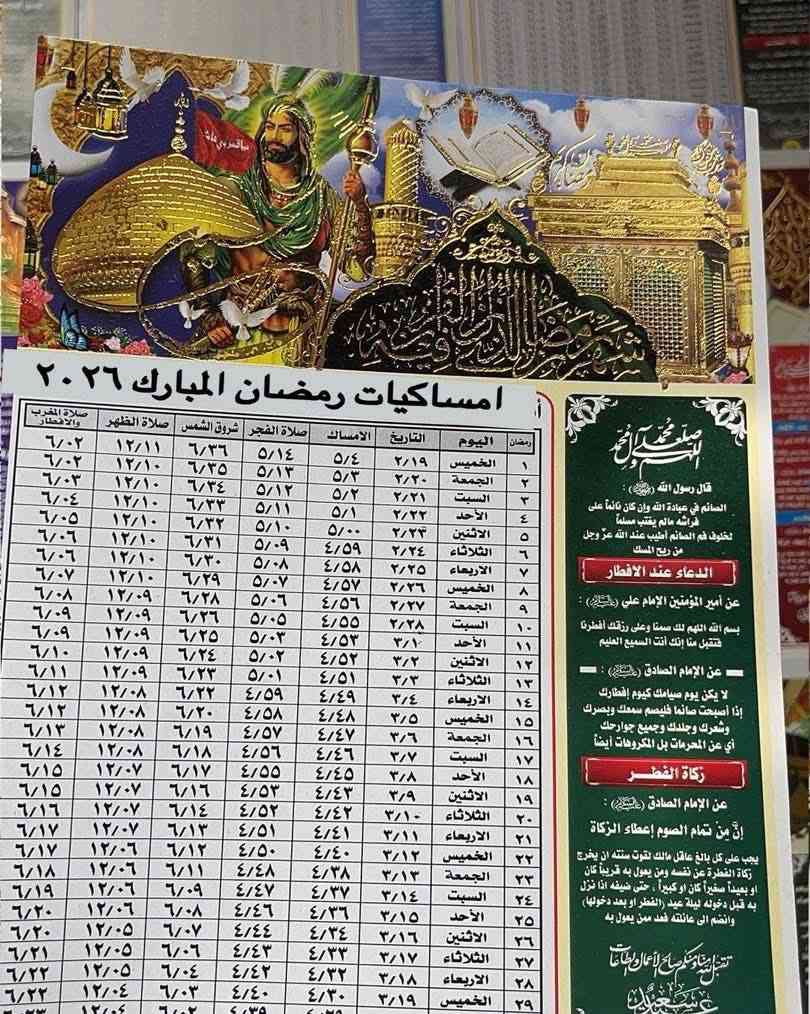 شهر رمضان الذي
امساكيات رمضان المبارك ٢٠٢٦
رمضان اليوم التاريخ الامساك صلاة الفجر شروق الشمس صلاة الظهر صلاة المغرب والافطار
١ الخميس ٢/١٩ ٥/٤ ٥/١٤ ٦/٣٦ ١٢/١١ ٦/٠٢
٢ الجمعة ٢/٢٠ ٥/٣ ٥/١٣ ٦/٣٥ ١٢/١٠ ٦/٠٢
٣ السبت ٢/٢١ ٥/٢ ٥/١٢ ٦/٣٤ ١٢/١٠ ٦/٠٣
٤ الأحد ٢/٢٢ ٥/١ ٥/١١ ٦/٣٣ ١٢/١٠ ٦/٠٤
٥ الاثنين ٢/٢٣ ٥/٠٠ ٥/١٠ ٦/٣٢ ١٢/١٠ ٦/٠٥
٦ الثلاثاء ٢/٢٤ ٤/٥٩ ٥/٠٩ ٦/٣١ ١٢/١٠ ٦/٠٦
٧ الاربعاء ٢/٢٥ ٤/٥٨ ٥/٠٨ ٦/٣٠ ١٢/١٠ ٦/٠٦
٨ الخميس ٢/٢٦ ٤/٥٧ ٥/٠٧ ٦/٢٩ ١٢/١٠ ٦/٠٧
٩ الجمعة ٢/٢٧ ٤/٥٦ ٥/٠٦ ٦/٢٨ ١٢/٠٩ ٦/٠٨
١٠ السبت ٢/٢٨ ٤/٥٥ ٥/٠٥ ٦/٢٦ ١٢/٠٩ ٦/٠٩
١١ الأحد ٣/١ ٤/٥٣ ٥/٠٣ ٦/٢٥ ١٢/٠٩ ٦/٠٩
١٢ الاثنين ٣/٢ ٤/٥٢ ٥/٠٢ ٦/٢٤ ١٢/٠٩ ٦/١٠
١٣ الثلاثاء ٣/٣ ٤/٥١ ٥/٠١ ٦/٢٣ ١٢/٠٩ ٦/١١
١٤ الاربعاء ٣/٤ ٤/٤٩ ٤/٥٩ ٦/٢٢ ١٢/٠٨ ٦/١٢
١٥ الخميس ٣/٥ ٤/٤٨ ٤/٥٨ ٦/٢٠ ١٢/٠٨ ٦/١٢
١٦ الجمعة ٣/٦ ٤/٤٧ ٤/٥٧ ٦/١٩ ١٢/٠٨ ٦/١٣
١٧ السبت ٣/٧ ٤/٤٦ ٤/٥٦ ٦/١٨ ١٢/٠٨ ٦/١٤
١٨ الأحد ٣/٨ ٤/٤٥ ٤/٥٥ ٦/١٧ ١٢/٠٧ ٦/١٥
١٩ الاثنين ٣/٩ ٤/٤٣ ٤/٥٣ ٦/١٦ ١٢/٠٧ ٦/١٥
٢٠ الثلاثاء ٣/١٠ ٤/٤٢ ٤/٥٢ ٦/١٤ ١٢/٠٧ ٦/١٦
٢١ الاربعاء ٣/١١ ٤/٤١ ٤/٥١ ٦/١٣ ١٢/٠٧ ٦/١٧
٢٢ الخميس ٣/١٢ ٤/٤٠ ٤/٥٠ ٦/١٢ ١٢/٠٦ ٦/١٧
٢٣ الجمعة ٣/١٣ ٤/٣٨ ٤/٤٨ ٦/١١ ١٢/٠٦ ٦/١٨
٢٤ السبت ٣/١٤ ٤/٣٧ ٤/٤٧ ٦/٠٩ ١٢/٠٦ ٦/١٩
٢٥ الأحد ٣/١٥ ٤/٣٦ ٤/٤٦ ٦/٠٨ ١٢/٠٦ ٦/٢٠
٢٦ الاثنين ٣/١٦ ٤/٣٤ ٤/٤٤ ٦/٠٧ ١٢/٠٥ ٦/٢٠
٢٧ الثلاثاء ٣/١٧ ٤/٣٣ ٤/٤٣ ٦/٠٦ ١٢/٠٥ ٦/٢١
٢٨ الاربعاء ٣/١٨ ٤/٣٢ ٤/٤٢ ٦/٠٤ ١٢/٠٥ ٦/٢٢
٢٩ الخميس ٣/١٩ ٤/٣٠ ٤/٤٠ ٦/٠٣ ١٢/٠٤ ٦/٢٢
اللهم صل على محمد وآل محمد
قال رسول الله (ﷺ) :
الصائم في عبادة الله وإن كان نائماً على
فراشه مالم يغتب مسلماً
لخلوف فم الصائم أطيب عند الله عز وجل
من ريح المسك
الدعاء عند الافطار
عن أمير المؤمنين الإمام علي (عليه السلام) :
بسم الله اللهم لك صمنا وعلى رزقك أفطرنا
فتقبل منا إنك أنت السميع العليم
عن الإمام الصادق (عليه السلام) :
لا يكن يوم صيامك كيوم إفطارك
إذا أصبحت صائما فليصم سمعك وبصرك
وشعرك وجلدك وجميع جوارحك
أي عن المحرمات بل المكروهات أيضاً
زكاة الفطر
عن الإمام الصادق (عليه السلام) :
إنّ مِنْ تمام الصوم إعطاء الزكاة
يجب على كل بالغ عاقل مالك لقوت سنته ان يخرج
زكاة الفطرة عن نفسه ومن يعول به قريباً كان
او بعيداً صغيراً كان او كبيراً ، حتى ضيفه اذا نزل
به قبل دخوله ليلة عيد (الفطر او بعد دخولها)
وانضم الى عائلته فعد ممن يعول به
تقبل الله منا ومنكم صالح الأعمال والطاعات
عيد سعيد